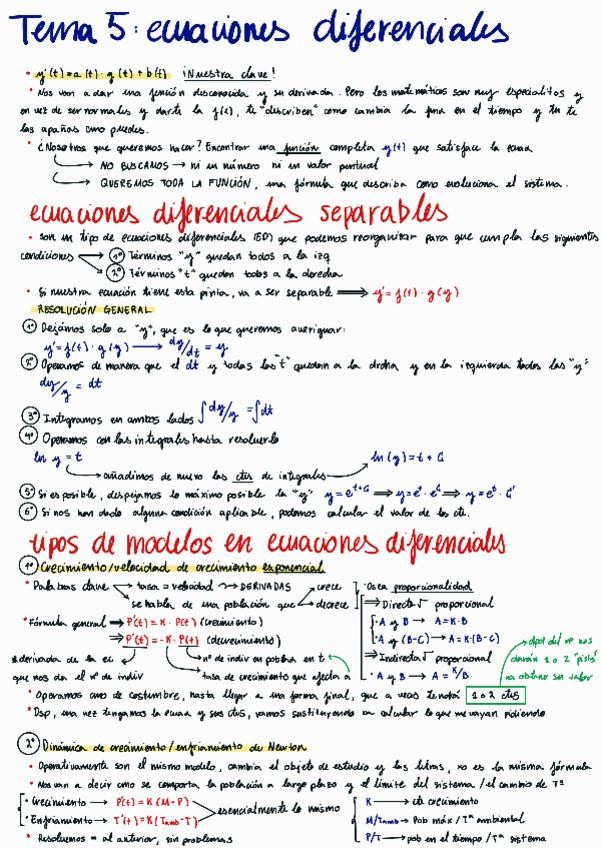 Tema 5: ecuaciones diferenciales
• y'(t) = a(t) · y(t) + b(t) ¡Nuestra clave!
• Nos van a dar una función desconocida y su derivada. Pero los matemáticos son muy especialitos y
en vez de ser normales y darte la f(t), te "describen" como cambia la func en el tiempo y tu te
las apañas como puedes.
• ¿Nosotros que queremos hacer? Encontrar una función completa y(t) que satisface la ecuac
→ NO BUSCAMOS → ni un número ni un valor puntual
→ QUEREMOS TODA LA FUNCIÓN, una fórmula que describa como evoluciona el sistema.
ecuaciones diferenciales separables
• son un tipo de ecuaciones diferenciales (ED) que podemos reorganizar para que cumpla las siguientes
condiciones → 1º Términos "y" quedan todos a la izq
→ 2º Términos "t" quedan todos a la derecha
• Si nuestra ecuación tiene esta pinta, va a ser separable ⟹ y' = f(t) · g(y)
RESOLUCIÓN GENERAL
1º Dejamos solo a "y", que es lo que queremos averiguar:
y' = f(t) · g(y) → dy/dt = y
2º Operamos de manera que el dt y todas las "t" queden a la drcha y en la izquierda todas las "y":
dy/y = dt
3º Integramos en ambos lados ∫dy/y = ∫dt
4º Operamos con las integrales hasta resolverlo
ln y = t ln(y) = t + C
→ añadimos de nuevo las ctes de integrales
5º Si es posible, despejamos lo máximo posible la "y" y = e^(t+C) ⟹ y = e^t · e^C ⟹ y = e^t · C'
6º Si nos han dado alguna condición aplicable, podemos calcular el valor de las cte.
tipos de modelos en ecuaciones diferenciales
1º Crecimiento/velocidad de crecimiento exponencial
• Palabras clave → tasa = velocidad → DERIVADAS crece
→ se habla de una población que decrece
• Fórmula general ⟹ P'(t) = K · P(t) (crecimiento)
⟹ P'(t) = -K · P(t) (decrecimiento)
* derivada de la ec
que nos da el nº de indiv
nº de indiv en poblac en t
tasa de crecimiento que afecta a
· Osea proporcionalidad
⟹ Direct√ proporcional
· A y B → A = K·B
· A y (B-C) → A = K·(B-C)
⟹ Indirect√ proporcional
· A y B → A = K/B
dpd del ej nos
darán 1 o 2 "pista"
pa obtener su valor
• Operamos como de costumbre, hasta llegar a una forma final, que a veces tendrá 1 o 2 ctes
• Dsp, una vez tengamos la ecuac y sus ctes, vamos sustituyendo pa calcular lo que nos vayan pidiendo
2º Dinámica de crecimiento/enfriamiento de Newton
• Operativamente son el mismo modelo, cambia el objeto de estudio y las letras, no es la misma fórmula
• Nos van a decir como se comporta la población a largo plazo y el límite del sistema / el cambio de Tª
• Crecimiento → P'(t) = K(M-P)
• Enfriamiento → T'(t) = K(Tamb-T)
esencialmente lo mismo
K → cte crecimiento
M/Tamb → Pob máx / Tª ambiental
P/T → pob en el tiempo / Tª sistema
• Resolvemos = al anterior, sin problemas